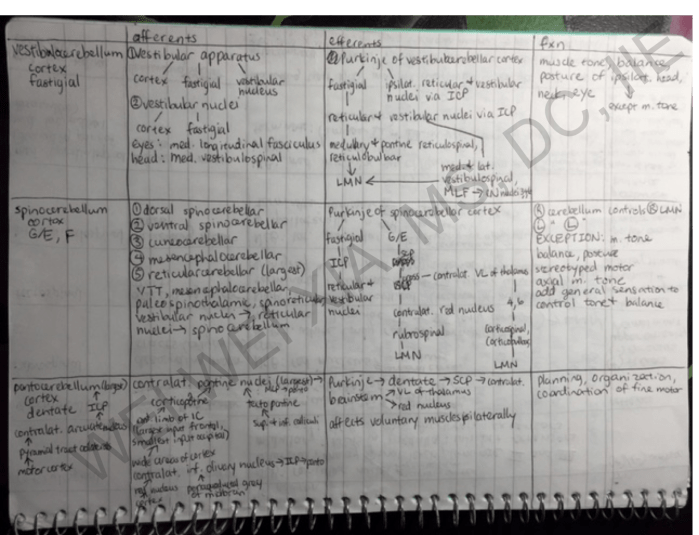 afferents efferents fxn
vestibulocerebellum
cortex
fastigial
① vestibular apparatus
cortex fastigial vestibular
nucleus
② vestibular nuclei
cortex fastigial
eyes: med. longitudinal fasciculus
head: med. vestibulospinal
Purkinje of vestibulocerebellar cortex
fastigial ipsilat. reticular + vestibular
nuclei via ICP
reticular + vestibular nuclei via ICP
medullary + pontine reticulospinal,
reticulobulbar
med. + lat.
vestibulospinal,
MLF → CN nuclei
LMN
muscle tone, balance,
posture of ipsilat. head,
neck, eye
except m. tone
spinocerebellum
cortex
G/E, F
① dorsal spinocerebellar
② ventral spinocerebellar
③ cuneocerebellar
④ mesencephalocerebellar
⑤ reticulocerebellar (largest)
VTT, mesencephalocerebellar,
paleospinothalamic, spinoreticular
vestibular nuclei → reticular
nuclei → spinocerebellum
Purkinje of spinocerebellar cortex
fastigial G/E
ICP
reticular +
vestibular
nuclei
SCP
contralat. VL of thalamus
contralat. red nucleus 4,6
rubrospinal corticospinal,
corticobulbar
LMN LMN
Ⓡ cerebellum controls Ⓡ LMN
Ⓛ " Ⓛ "
EXCEPTION: m. tone
balance, posture
stereotyped motor
axial m. tone
add general sensation to
control tone + balance
pontocerebellum (biggest)
cortex
dentate ICP
contralat. arcuate nucleus
pyramidal tract collaterals
motor cortex
contralat. pontine nuclei (largest) →
MCP → ponto
corticopontine tectopontine
ant limb of IC
(largest input frontal,
smallest input occipital)
sup + inf. colliculi
wide areas of cortex
contralat. inf. olivary nucleus → ICP → ponto
red nucleus periaqueductal gray
cortex of midbrain
Purkinje → dentate → SCP → contralat.
brainstem → VL of thalamus
→ red nucleus
affects voluntary muscles ipsilaterally
planning, organization,
coordination of fine motor
WEI XIA, MS, DC,